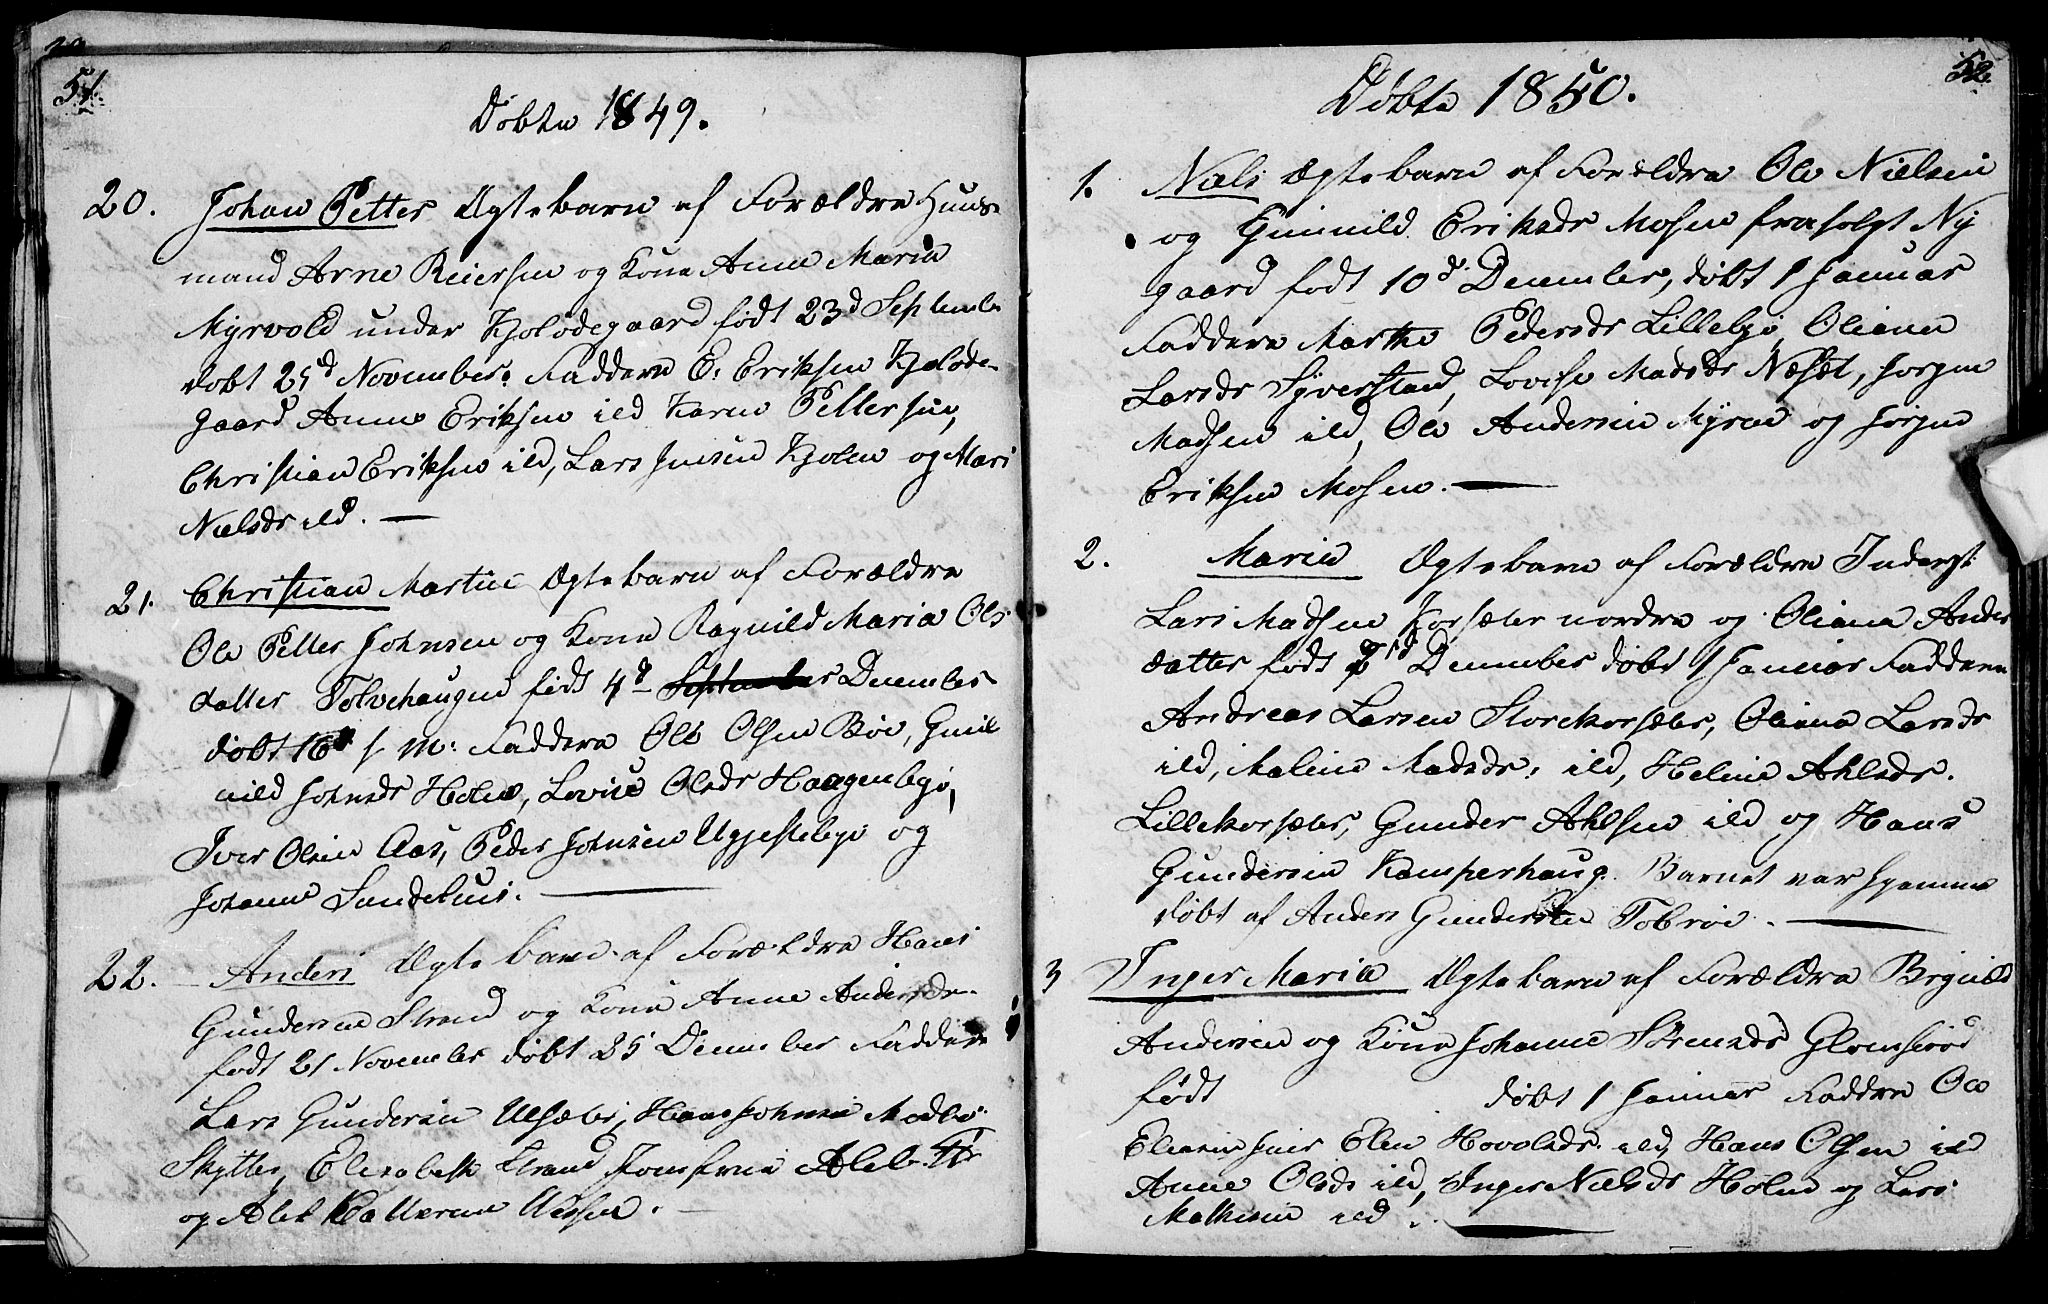 51.
Döbte 1849.
20. Johan Petter Ægtebarn af Forældre Huus-
mand Arne Reiersen og Kone Anne Maria
Myrvold under Kjolodegaard födt 23d Septembr
döbt 25d November. Faddere E. Eriksen Kjolode-
gaard Anne Eriksen ild Karen Pettersen,
Christian Eriksen ild, Lars Jensen Kjolen og Mari
Nielsdr ild. —
21. Christian Martin Ægtebarn af Forældre
Ole Petter Johnsen og Kone Ragnild Maria Ols-
datter Tolvehaugen födt 4d September December
döbt 16d s. M: Faddere Ole Olsen Böe, Gun
nild Johnsdr Holen, Lovise Olsdr Haagenbye,
Iver Olsen Aas, Peder Johnsen Uggestebye og
Johanne Sundehuus. —
22. Anders Ægtebarn af Forældre Hans
Gundersen Strand og Kone Anne Andersdr.
födt 21 November döbt 25 December Faddere
Lars Gundersen Ulsæter, Hans Johnsen
Skytter, Elisabeth Strand Jomfrue
og Alet Kattrine
52.
Döbte 1850.
1. Niels Ægtebarn af Forældre Ole Nielsen
og Gunnild Eriksdr Mosen frasolgt Ny
gaard födt 10d December, döbt 1 Januar
Faddere Marthe Pedersdr Lillebye Oliana
Larsdr Syverstad, Lovise Madsdr Næset, Jorgen
Madsen ild, Ole Andersen Myren og Jörgen
Eriksen Mosen. —
2. Maria Ægtebarn af Forældre Inderst
Lars Madsen Korsæter nordre og Oliana Anders
datter födt December döbt 1 Januar Faddere
Andreas Larsen Storekorsæter, Oliana Larsdr
ild, Maline Madsdr: ild, Helene Ahlsdr.
Lillekorsæter, Gunder Ahlsen ild og Hans
Gundersen Kamperhaug. Barnet var hjemme
döbt af Anders Gundersen Tobröe. —
3 Inger Maria Ægtebarn af Forældre Brynild
Andersen og Kone Johanne Sörensdr Glomseröd
födt döbt 1 Januar Faddere Ole
Elen Hovelsdr ild, Hans Olsen ild
Anne Olsdr ild, Inger Nielsdr Holm og Lars
Mathisen ild. —